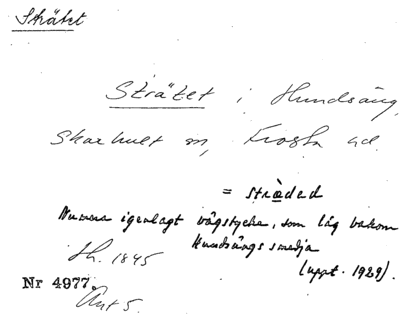 Strätet
Strätet i Hundsäng,
Skarhult sn, Frosta hd.
= strädäd
Numera igenlagt vägstycke, som låg bakom
Hundsängs smedja
(uppt. 1929).
Sk. 1845
Nr 4977
Ant 5.